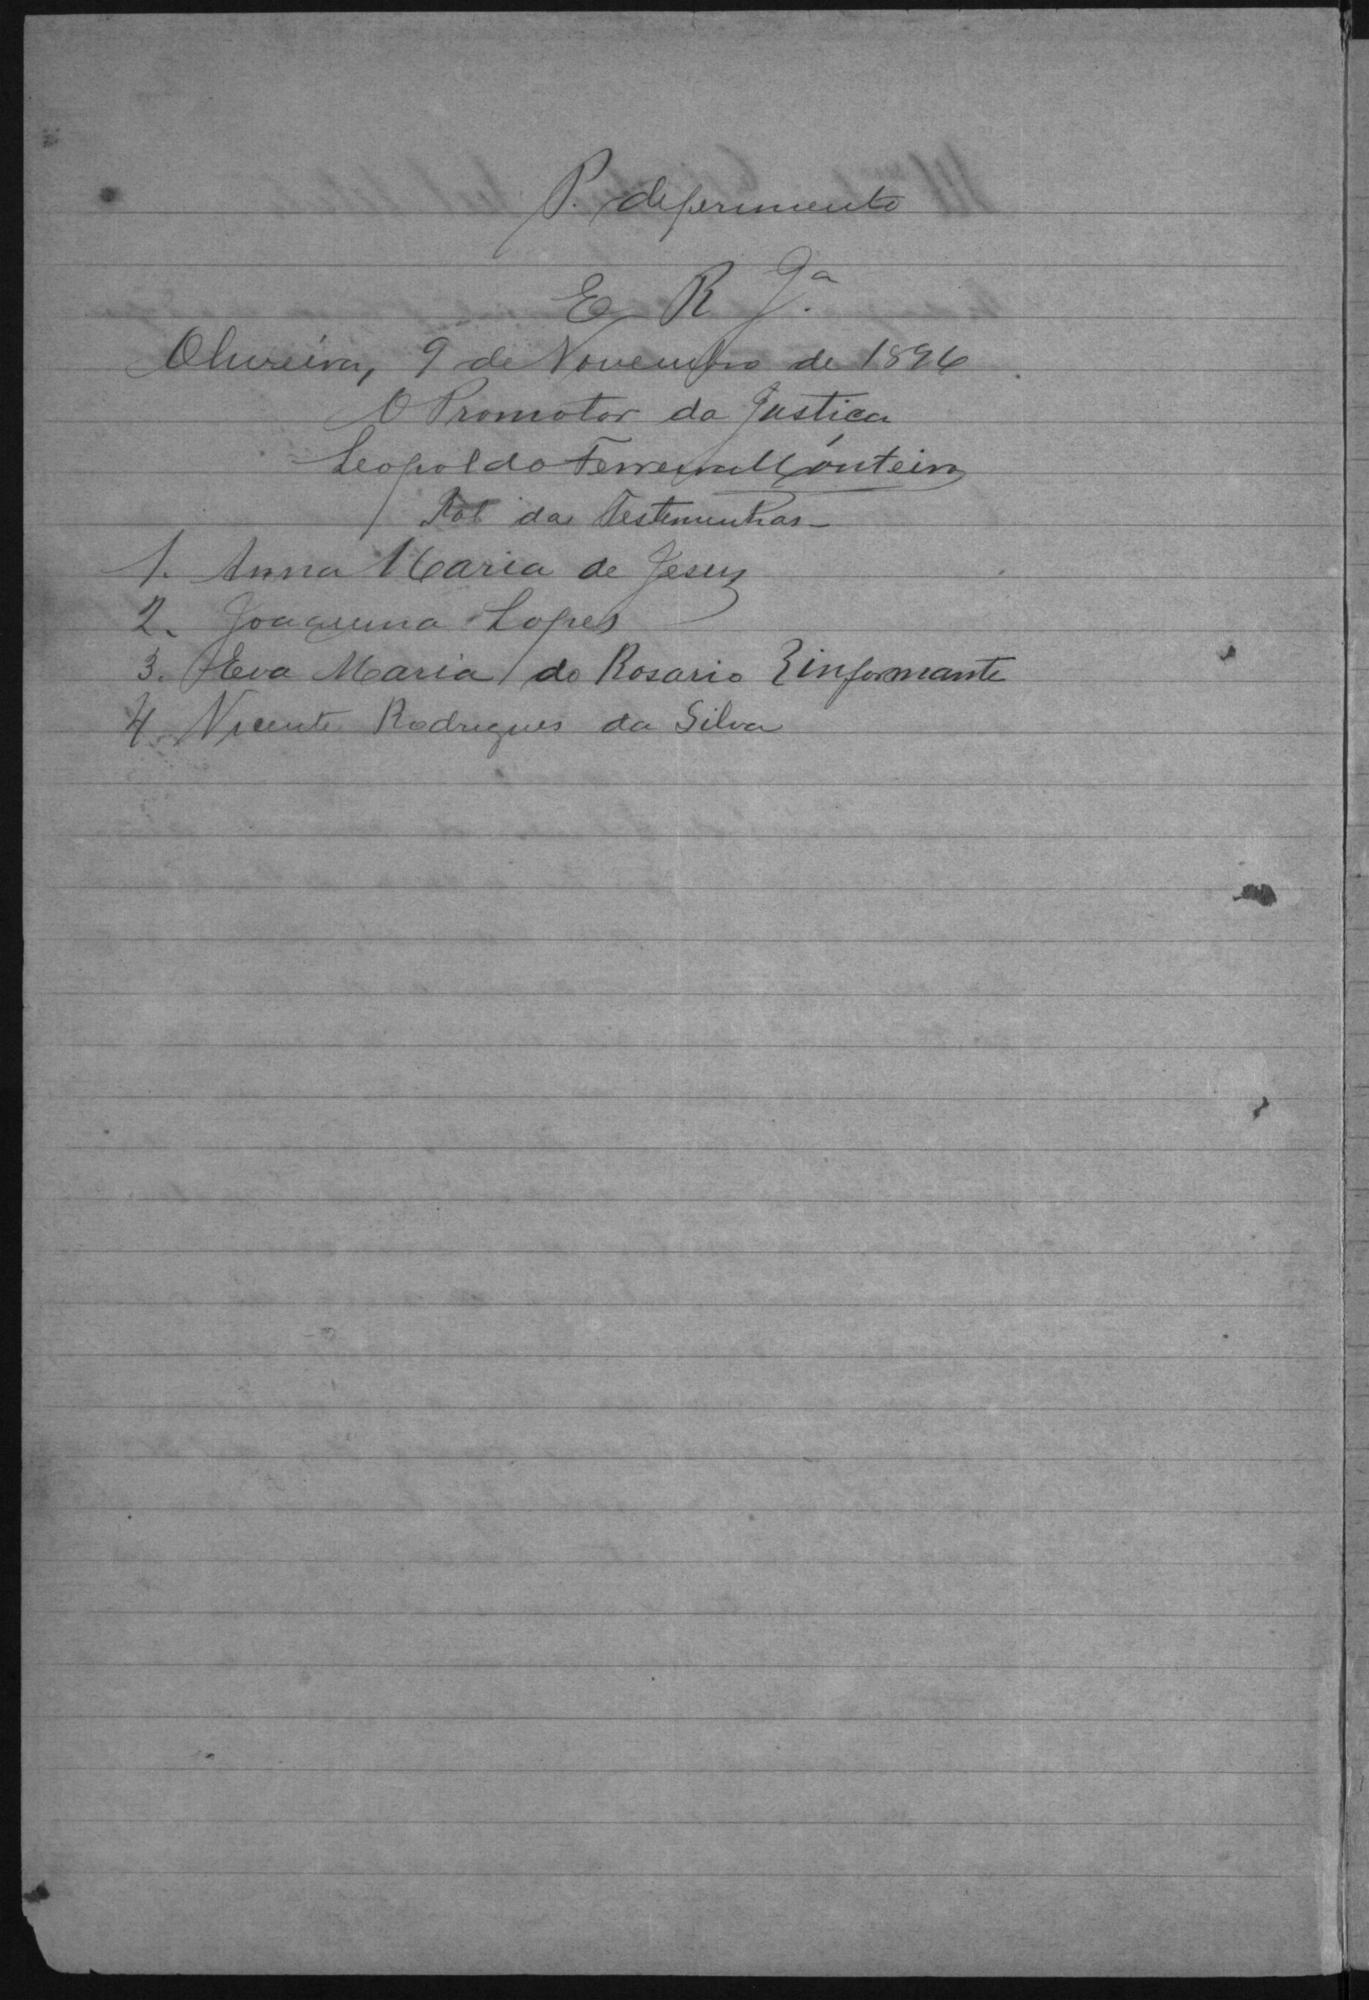 P. deferimento
E R J.ª
Oliveira, 9 de Novembro de 1896.
O Promotor da Justica
Leopoldo Ferreira Monteiro
Rol das Testemunhas
1. Anna Maria de Jesus
2. Joaquina Lopes
3. Eva Maria do Rosario informante
4 Vicente Rodrigues da Silva